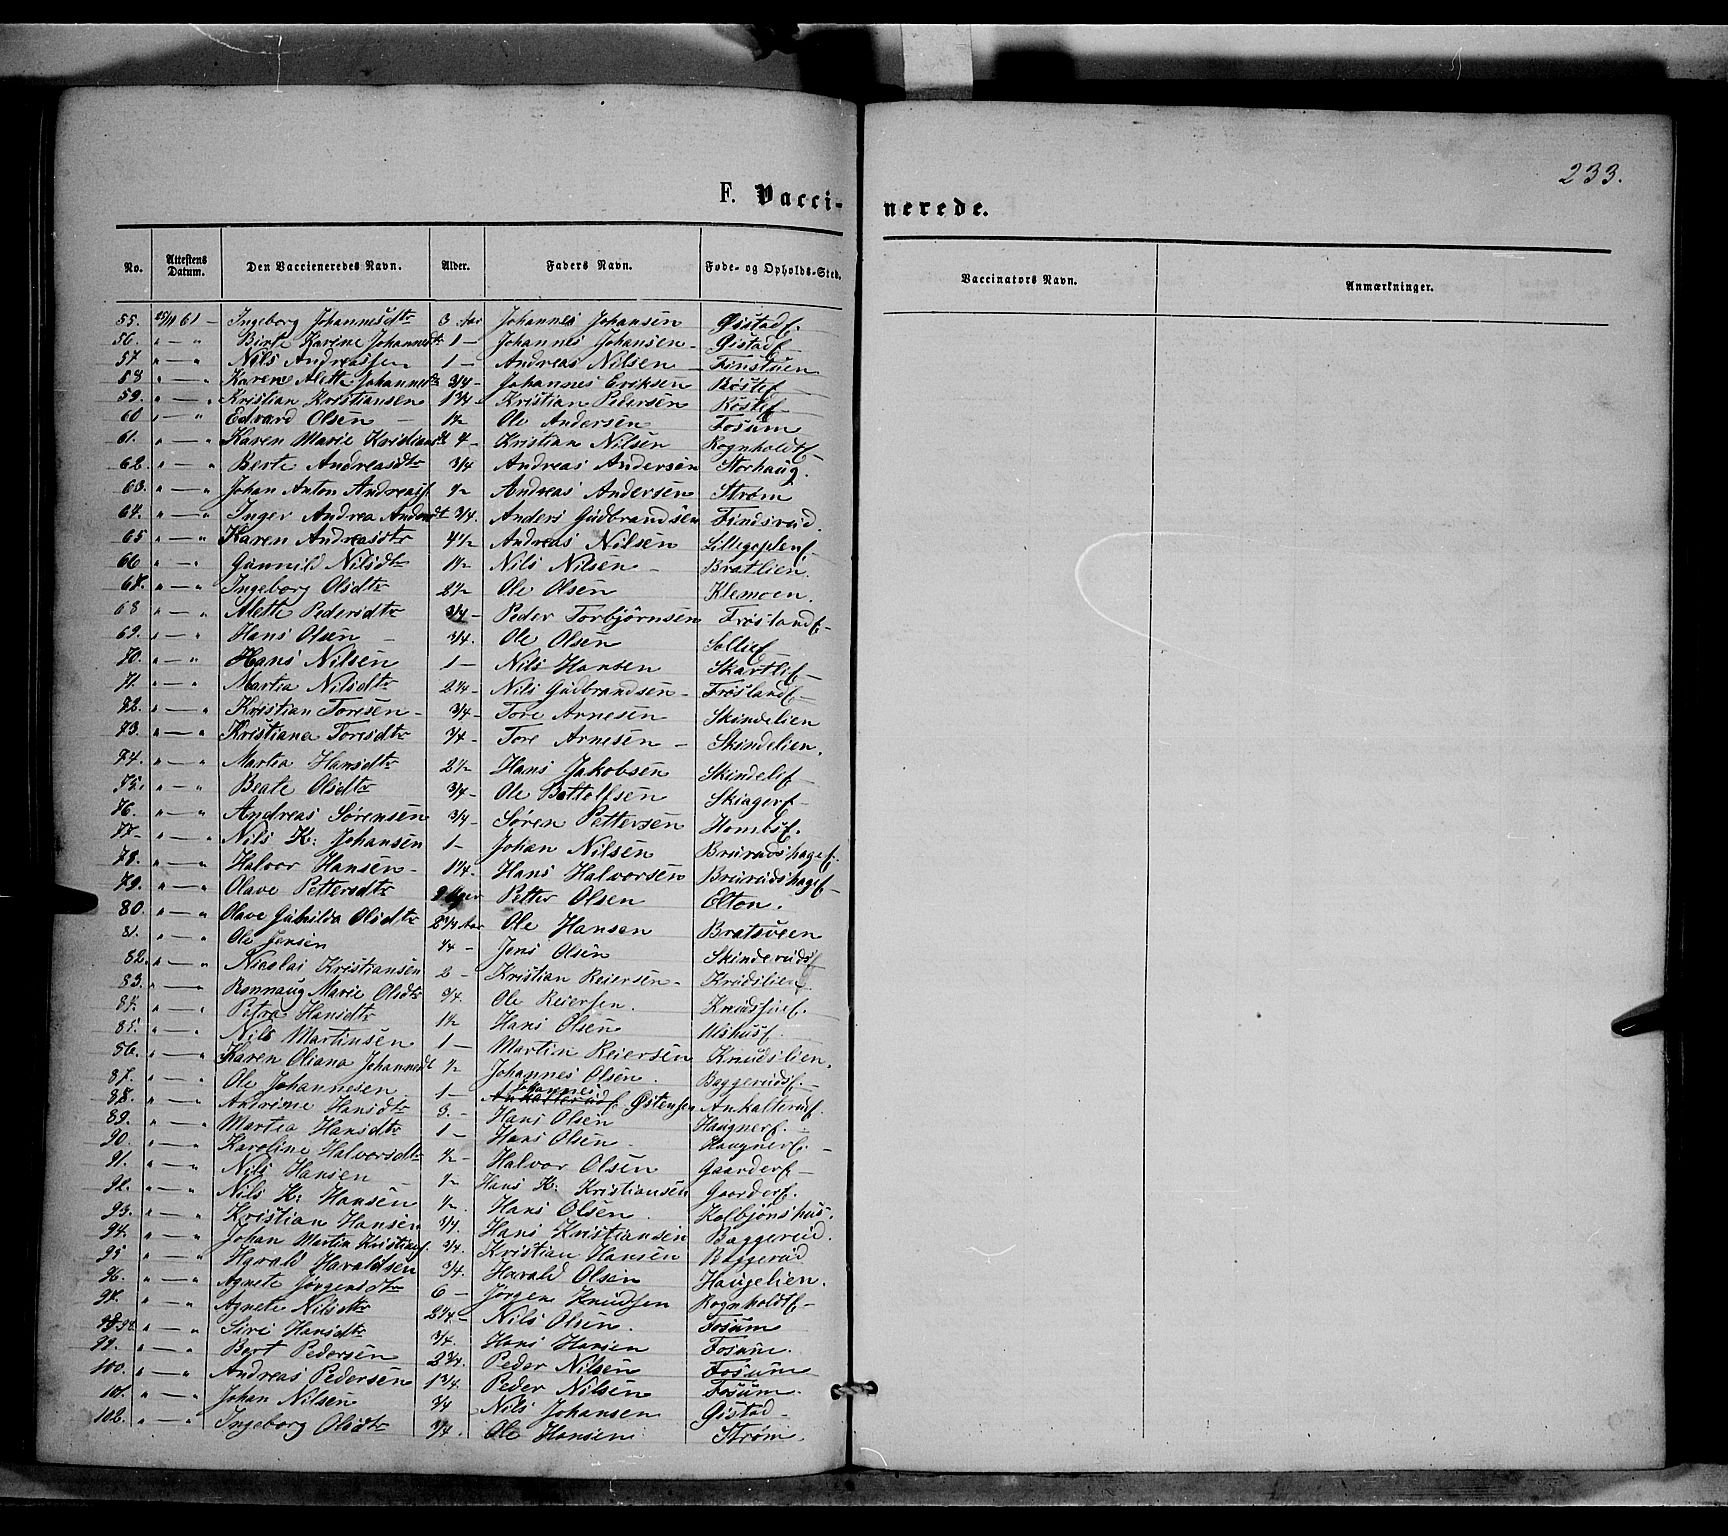 233.
F. Vacci-nerede.
No. Attestens Datum. Den Vaccieneredes Navn. Alder. Faders Navn. Føde- og Opholds-Sted. Vaccinators Navn. Anmærkninger.
55. 61 — Ingeborg Johannesdtr 3 Aar Johannes Johansen Gistadf.
56. " — " Birte Karine Johannesdt 1 — Johannes Johansen — Gistadf
57. " — " Nils Andreassen 1 — Andreas Nilsen — Finstuen
58 " — " Karen Mette Johannesdtr 3/4 — Johannes Eriksen
59. " — " Kristian Kristiansen 1 3/4 — Kristian Pedersen
60 " — " Edvard Olsen — 1 1/2 Ole Andersen Fosum
61. " — " Karen Marie Kristiansdt 4 — Kristian Nilsen Rognholdtf
62. " — " Berte Andreasdtr 3/4 Andreas Andersen Storhaug.
63. " — " Johan Anton Andreasf 1/2 Andreas Andersen Strøm
64. " — " Inger Andrea Andersdt 3/4. Anders Gudbrandsen Findsrud.
65 " — " Karen Andreasdtr 4 1/2 Andreas Nilsen
66 " — " Gunnild Nilsdtr 1 1/2 Nils Nilsen — Bratlien.
67. " — " Ingeborg Olsdtr 2 1/2 Ole Olsen Klemoen.
68 " — " Mette Pedersdtr 3/4 — Peder Torbjørnsen Frøslandf —
69. " — " Hans Olsen — 3/4. Ole Olsen Sollief
70. " — " Hans Nilsen 1 — Nils Hansen Skartlif —
71. " — " Martia Nilsdtr 2 1/4 — Nils Gudbrandsen — Frøslandf —
72. " — " Kristian Toresen — 3/4 — Tore Arnesen Skindelien
73. " — " Kristiana Toresdtr 3/4 — Tore Arnesen — Skindelien.
74. " — " Martea Hansdtr 2 1/2 Hans Jakobsen Skindelif —
75. " — " Beate Olsdtr 3/4 — Ole Bottolfsen Skiagerf —
76. " — " Andreas Sørensen 3/4 — Søren Pettersen
77 — " — " Nils K. Johansen 1 — Johan Nilsen Breirudshagef.
78. " — " Halvor Hansen — 1 1/4. Hans Halvorsen Breirudshagef —
79. " — " Olave Pettersdtr Petter Olsen Elton.
80. " — " Olave Gunilda Olsdtr 2 1/4 Aar Ole Hansen Bratsveen
81. " — " Ole Jensen 1/4 — Jens Olsen Skinderudsf
82. " — " Nicolai Kristiansen 2 — Kristian Reiersen — Knudslien
83. " — " Rønnaug Marie Olsdtr 3/4. Ole Reiersen.
84. " — " Petra Hansdtr 1 1/2 Hans Olsen
85. " — " Nils Martinsen 1 — Martin Reiersen Knudslien.
86. " — " Karen Oliana Johannesdt 1/2 Johannes Olsen. Baggerudsf. —
87. " — " Ole Johannesen 1 — Johannes Østensen Ankalterudf.
88. " — " Andrine Hansdtr 3. — Hans Olsen Haugnerf. —
89. " — " Martea Hansdtr 1 — Hans Olsen — Haugnerf. —
90. " — " Karoline Halvorsdtr 1/2 — Halvor Olsen Gaarderf —
91. " — " Nils Hansen — 1/2 Hans K. Kristiansen Gaarderf.
92. " — " Nils K. Hansen 1/2. Hans Olsen. Kolbjønshus.
93. " — " Kristian Hansen 3/4. Hans Kristiansen Baggerud.
94. " — " Johan Martin Kristiansf. 3/4. Kristian Hansen Baggerud
95 " — " Harald Haraldsen 3/4. Harald Olsen Haugelien.
96. " — " Agnete Jørgensdtr 6 — Jørgen Knudsen Rognholdtf —
97. " — " Agnete Nilsdtr 2 1/4. — Nils Olsen. Fosum
98. " — " Siri Hansdtr 3/4. Hans Hansen Fosum.
99. " — " Bert Pedersen 2 3/4. Peder Nilsen Fosum
100. " — " Andreas Pedersen 1 3/4. Peder Nilsen Fosum.
101. " — " Johan Nilsen 3/4 — Nils Johansen Gistad —
102. " — " Ingeborg Olsdtr 3/4. Ole Hansen Strøm.